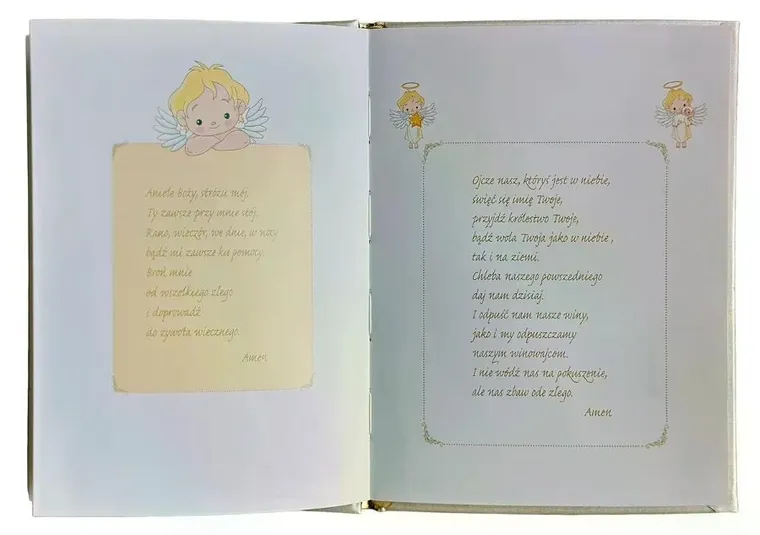 Aniele Boży, stróżu mój,
Ty zawsze przy mnie stój.
Rano, wieczór, we dnie, w nocy
bądź mi zawsze ku pomocy.
Broń mnie
od wszelkiego złego
i doprowadź
do żywota wiecznego.
Amen
Ojcze nasz, któryś jest w niebie,
święć się imię Twoje,
przyjdź królestwo Twoje,
bądź wola Twoja jako w niebie ,
tak i na ziemi.
Chleba naszego powszedniego
daj nam dzisiaj.
I odpuść nam nasze winy,
jako i my odpuszczamy
naszym winowajcom.
I nie wódź nas na pokuszenie,
ale nas zbaw ode złego.
Amen